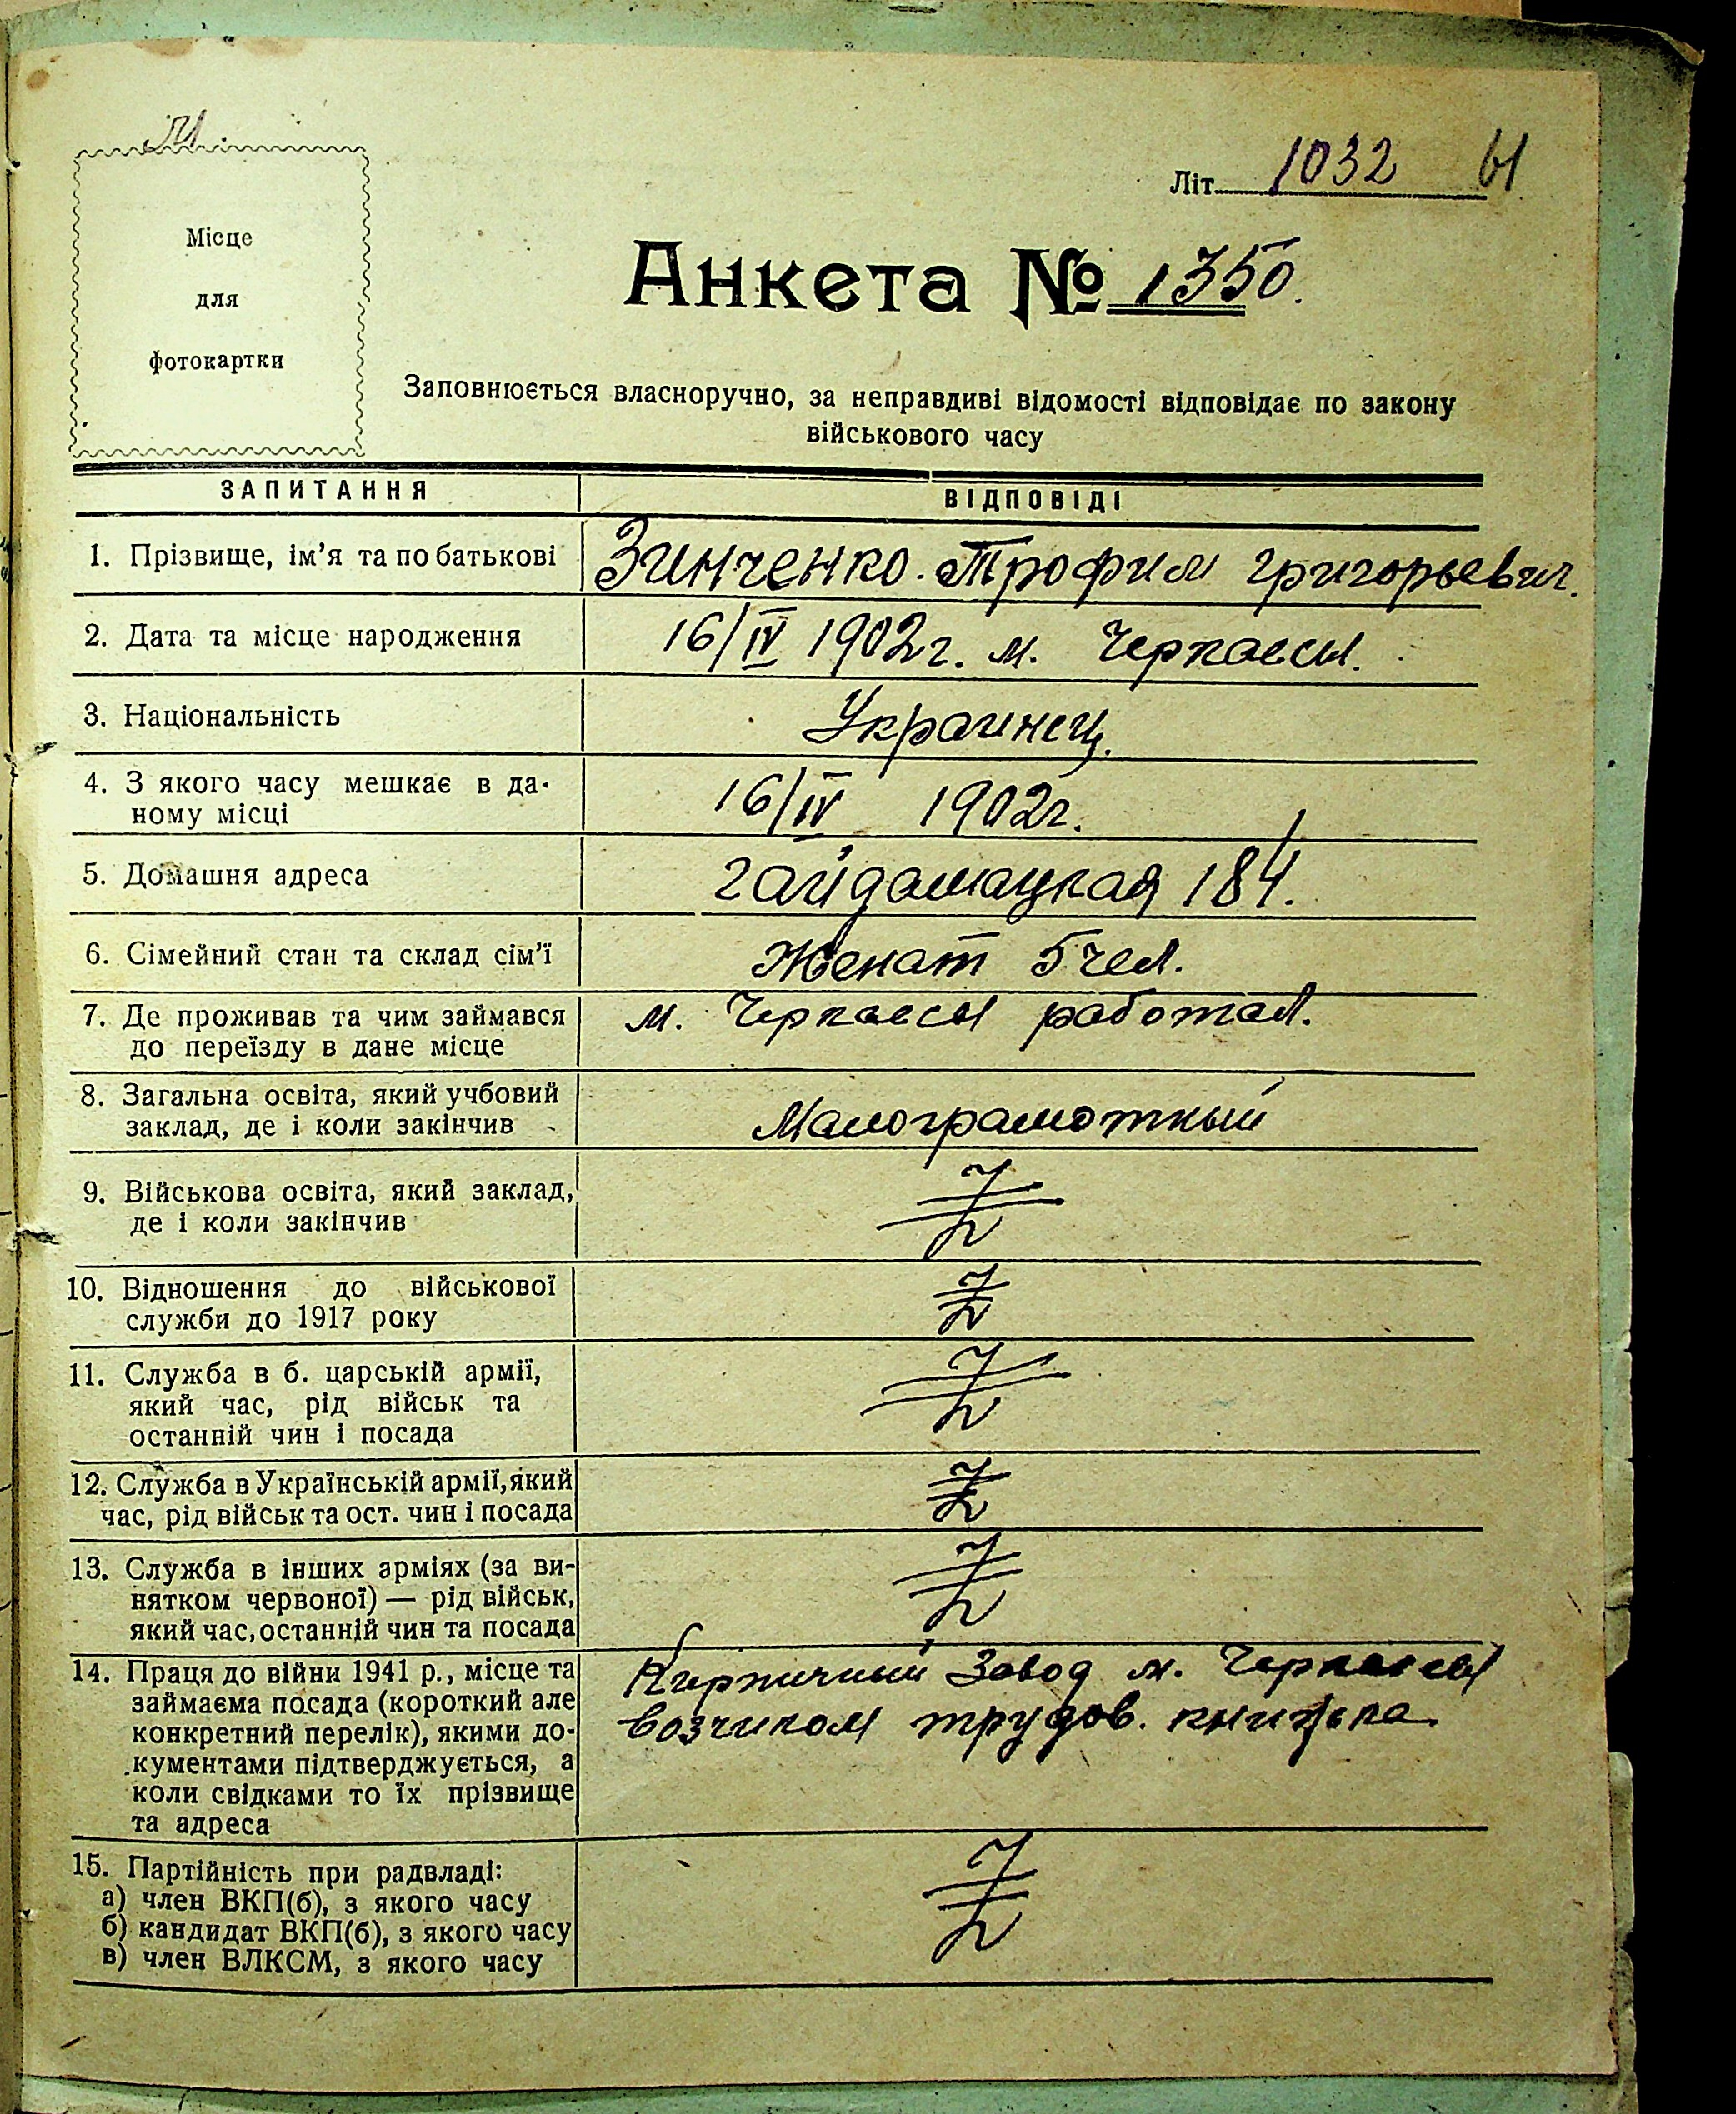 Літ. 1032 61
Місце
для
фотокартки
Анкета № 1350.
Заповнюється власноручно, за неправдиві відомості відповідає по закону
військового часу
ЗАПИТАННЯ ВІДПОВІДІ
1. Прізвище, ім'я та по батькові Зинченко. Трофим Григорьевич.
2. Дата та місце народження 16/IV 1902г. м. Черкассы.
3. Національність Украинец.
4. З якого часу мешкає в да-
ному місці 16/IV 1902г.
5. Домашня адреса Гайдамацкая 184.
6. Сімейний стан та склад сім'ї Женат 5 чел.
7. Де проживав та чим займався м. Черкассы работал.
до переїзду в дане місце
8. Загальна освіта, який учбовий
заклад, де і коли закінчив Малограмотный
9. Військова освіта, який заклад,
де і коли закінчив
10. Відношення до військової
служби до 1917 року
11. Служба в б. царській армії,
який час, рід військ та
останній чин і посада
12. Служба в Українській армії, який
час, рід військ та ост. чин і посада
13. Служба в інших арміях (за ви-
нятком червоної) — рід військ,
який час, останній чин та посада
14. Праця до війни 1941 р., місце та Кирпичный Завод м. Черкассы
займаєма посада (короткий але возчиком трудов. книжка
конкретний перелік), якими до-
кументами підтверджується, а
коли свідками то їх прізвище
та адреса
15. Партійність при радвладі:
а) член ВКП(б), з якого часу
б) кандидат ВКП(б), з якого часу
в) член ВЛКСМ, з якого часу